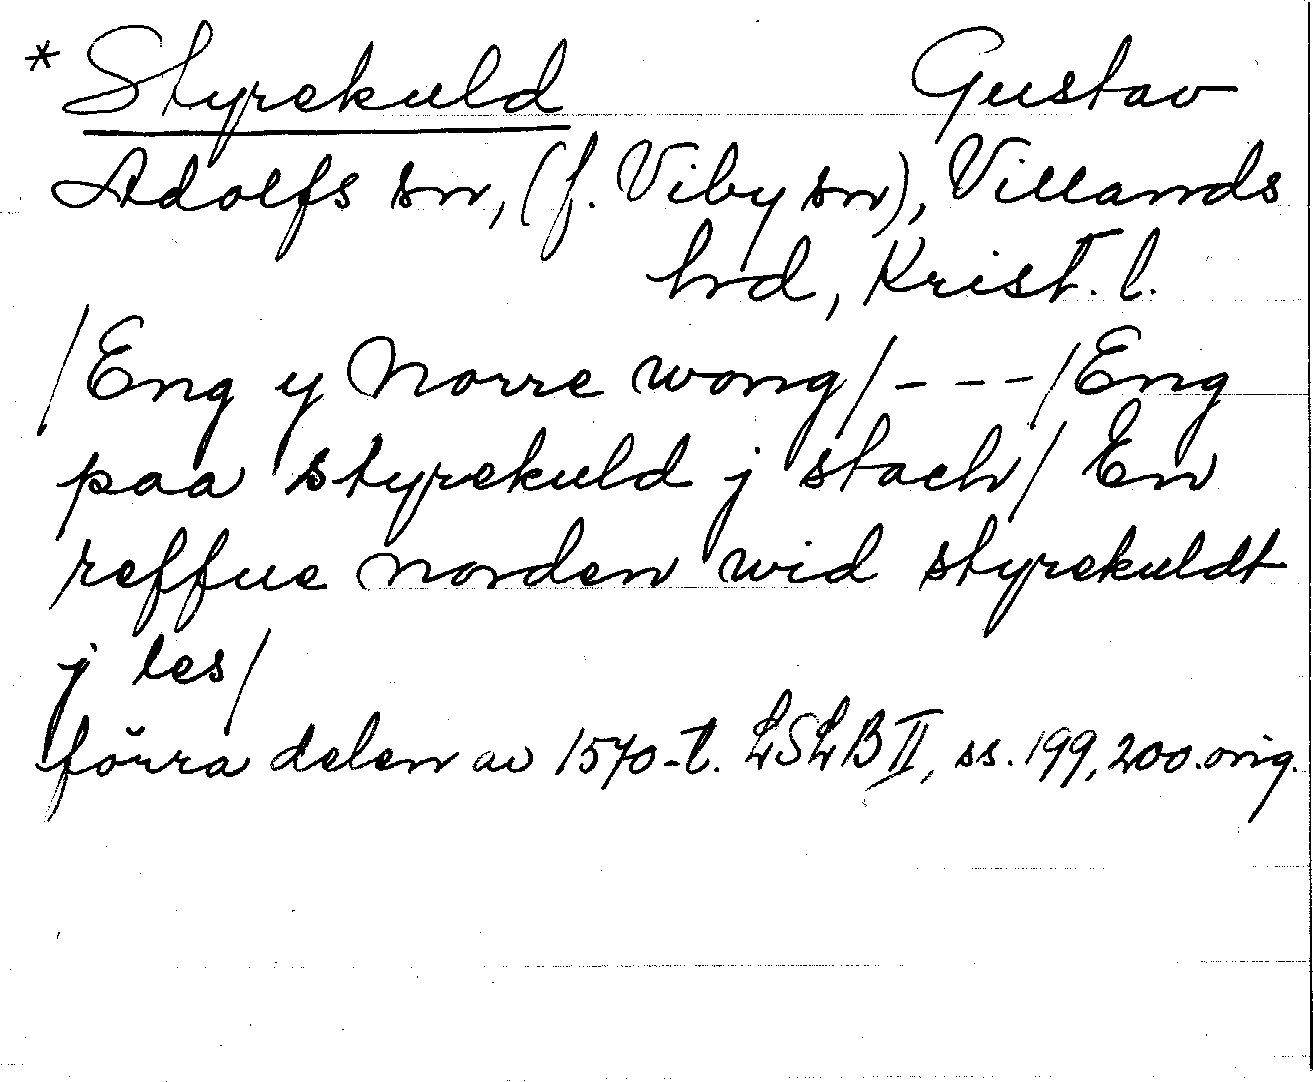 * Styrekuld Gustav
Adolfs sn, (f. Viby sn), Villands
hrd, Krist. l.
/Eng y Norre wong/ - - - /Eng
paa styrekuld j stach/ En
reffue norden wid styrekuldt
j les/
förra delen av 1570-t. LSLB II, ss. 199, 200. orig.